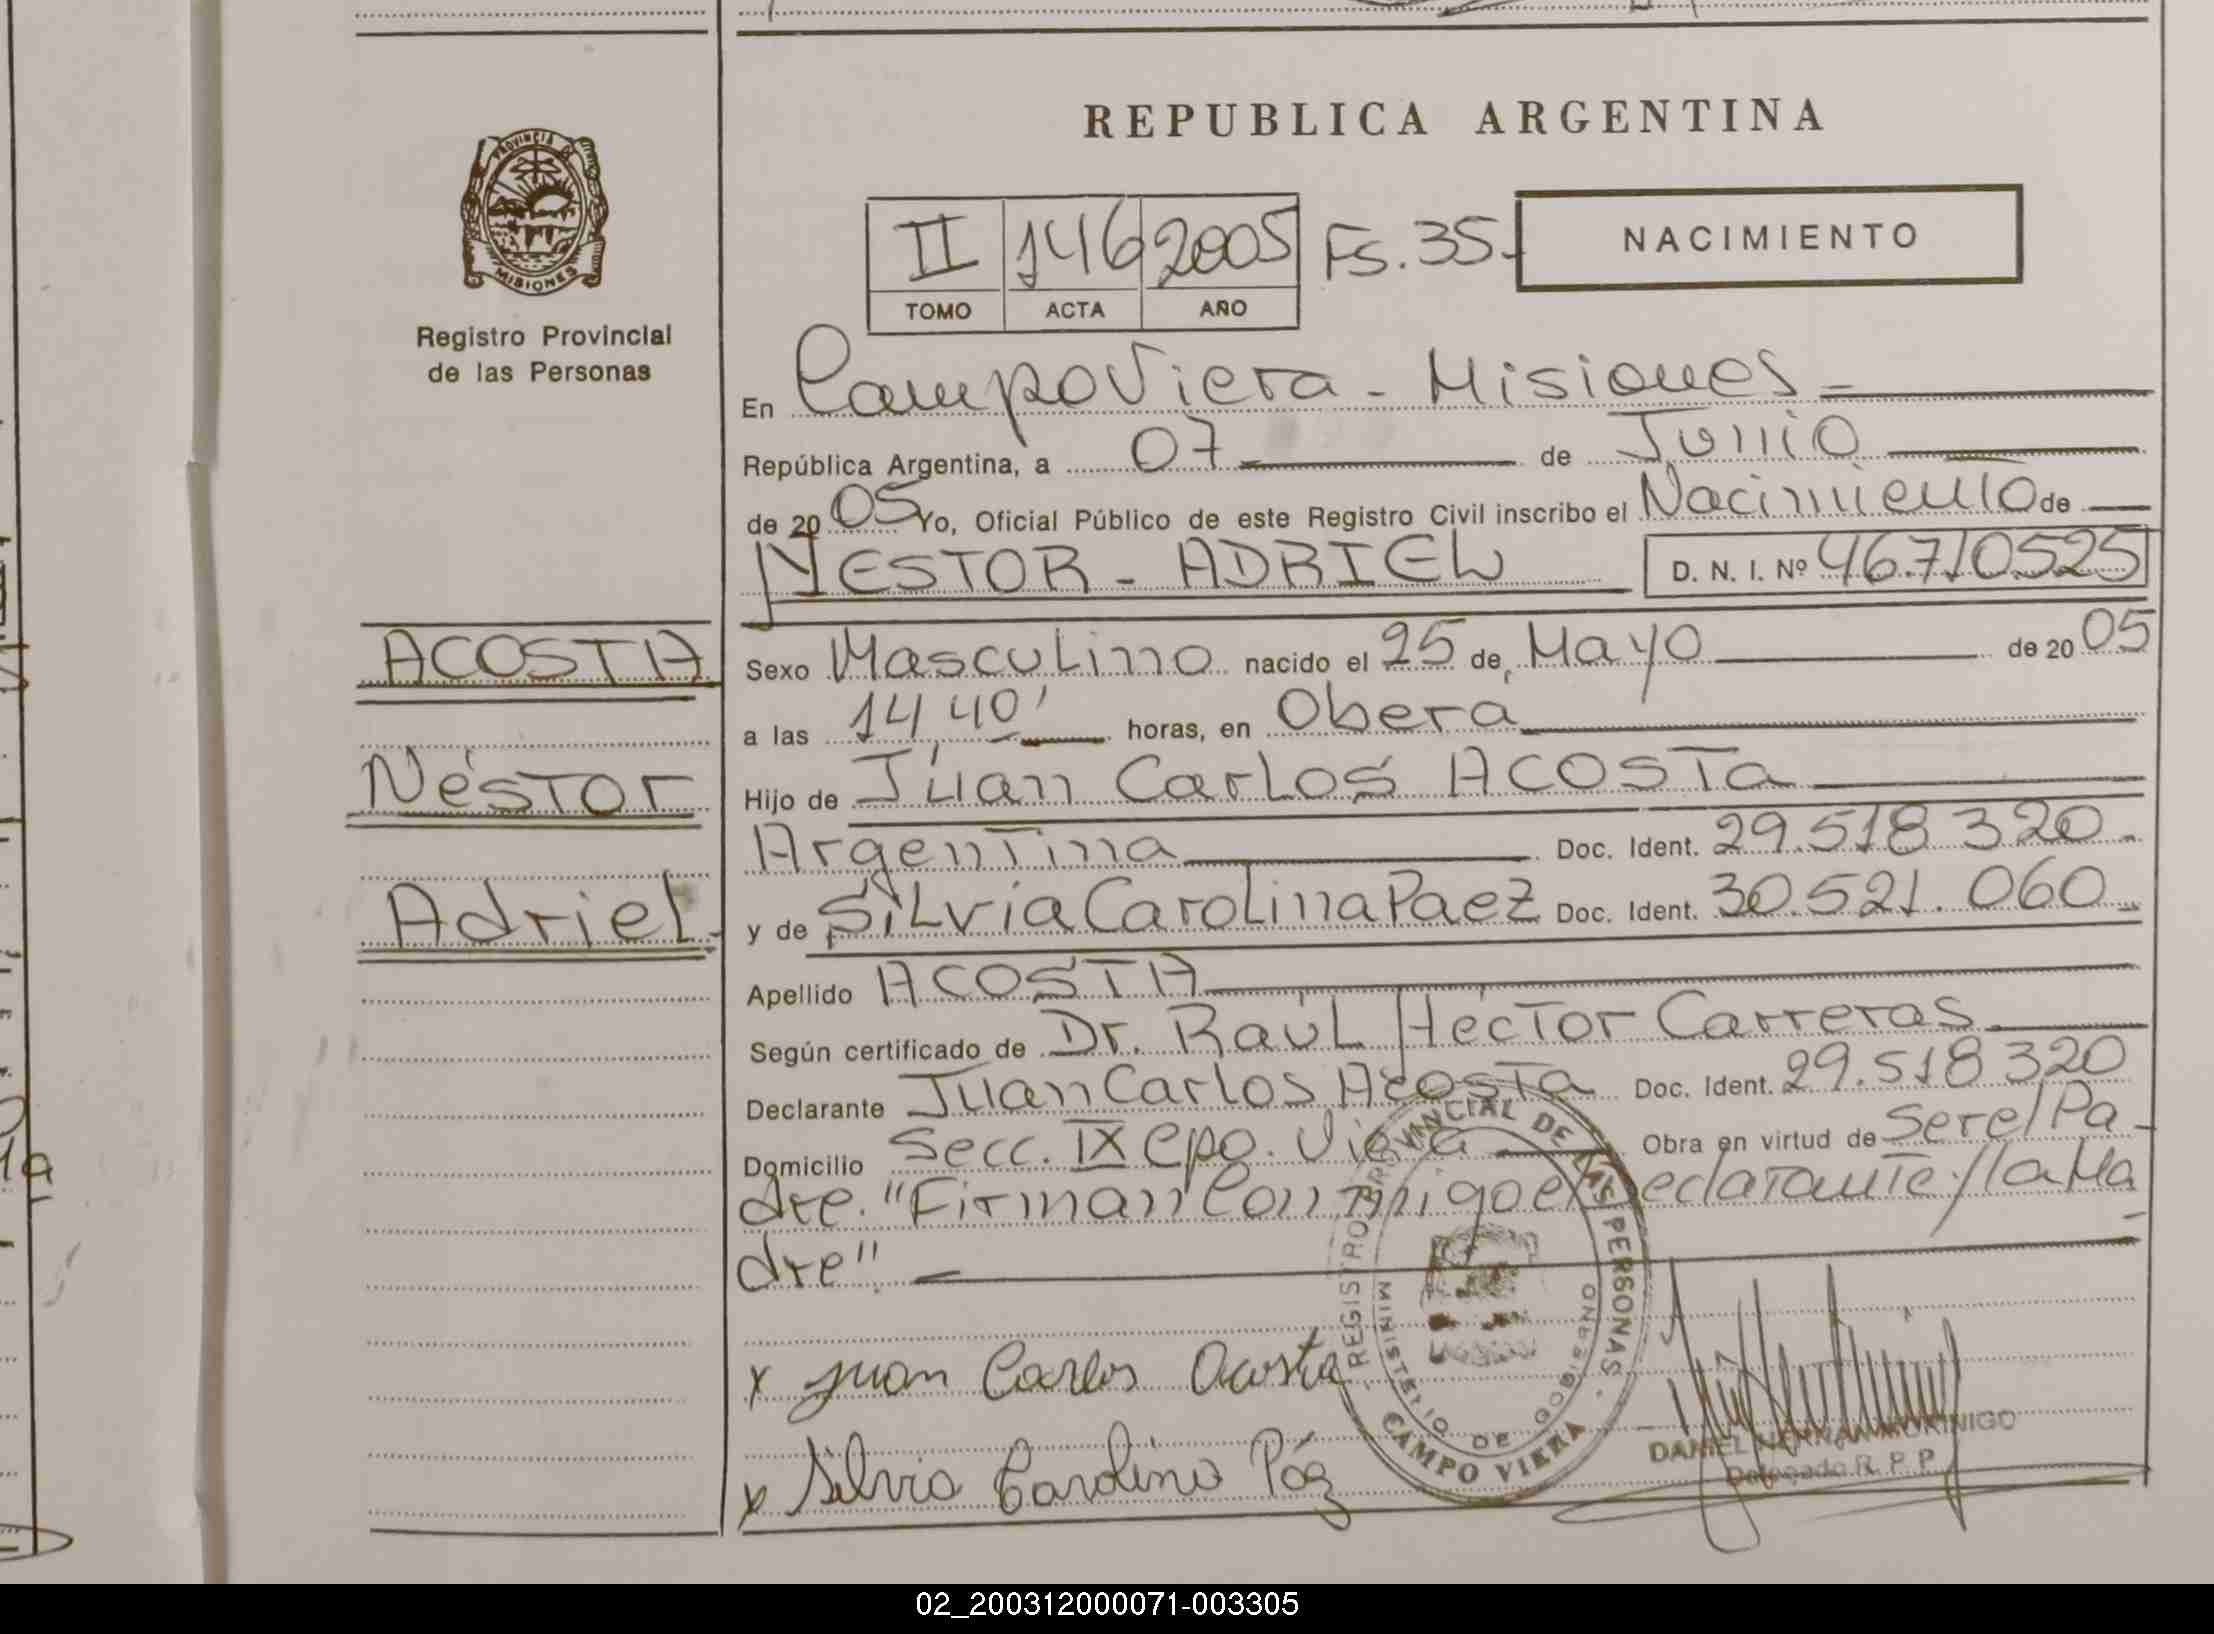 REPUBLICA ARGENTINA
PROVINCIA DE MISIONES
Registro Provincial
de las Personas
II 146 2005 Fs. 35-
TOMO ACTA AÑO
NACIMIENTO
En Campo Viera - Misiones =
República Argentina, a 07 de Junio
de 2005 Yo, Oficial Público de este Registro Civil inscribo el Nacimiento de
NESTOR - ADRIEL D. N. I. Nº 46.710.525
ACOSTA
Néstor
Adriel.
Sexo Masculino nacido el 25 de Mayo de 2005
a las 14 40' horas, en Oberá
Hijo de Juan Carlos ACOSTA
Argentina Doc. Ident. 29.518 320-
y de Silvia Carolina Paez Doc. Ident. 30.521.060-
Apellido ACOSTA
Según certificado de Dr. Raúl Héctor Carreras
Declarante Juan Carlos Acosta Doc. Ident. 29.518 320
Domicilio Secc. IX Cpo. Viera Obra en virtud de Ser el Pa-
dre. "Firman Conmigo el Declarante y la Ma-
dre"
x Juan Carlos Acosta
x Silvia Carolina Páz
REGISTRO PROVINCIAL DE LAS PERSONAS
MINISTERIO DE GOBIERNO
CAMPO VIERA
DANIEL HERNAN MORINIGO
Delegado R. P. P.
02_200312000071-003305